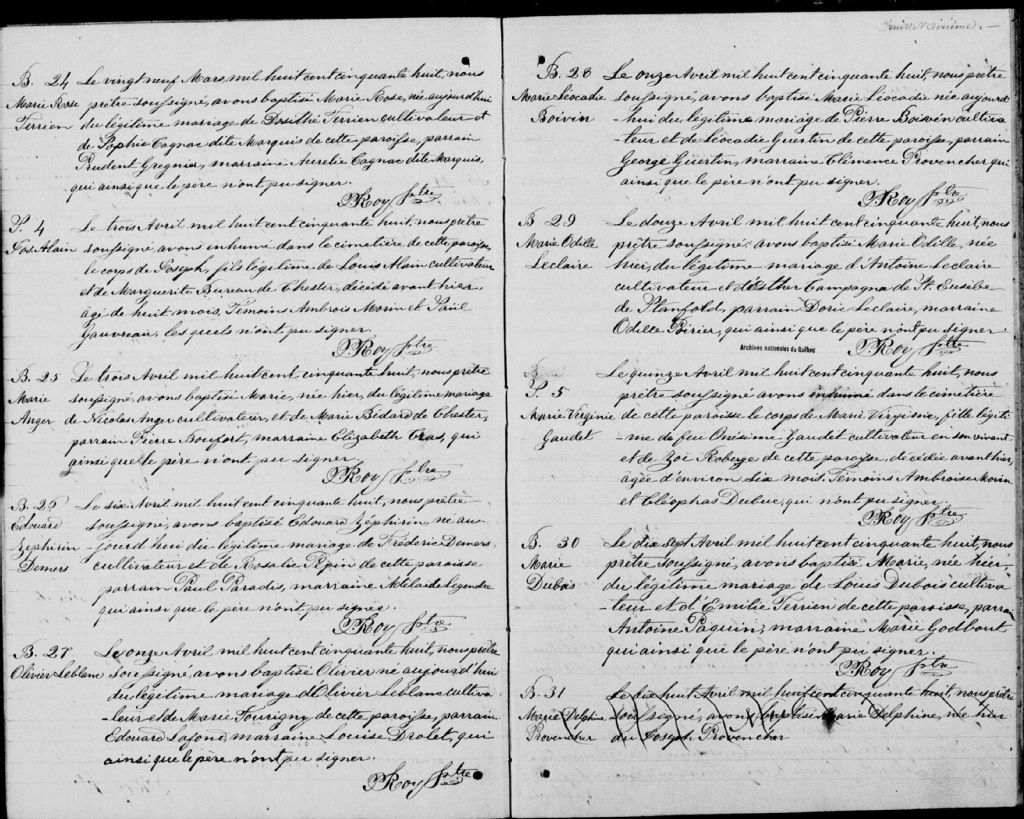 B. 24 Le vingt neuf Mars mil huit cent cinquante huit, nous
Marie Rose prêtre soussigné, avons baptisé Marie Rose, née aujourd'hui
Terrien du légitime mariage de Dosithé Terrien cultivateur et
de Sophie Cagnac dite Marquis de cette paroisse, parrain
Prudent Gregnier, marraine Aurelie Cagnac dite Marquis,
qui ainsi que le père n'ont pu signer.
P Roy Ptre
S. 4 Le trois Avril mil huit cent cinquante huit, nous prêtre
Jos Alain soussigné avons inhumé dans le cimetière de cette paroisse
le corps de Joseph, fils légitime de Louis Alain cultivateur
et de Marguerite Bureau de Chester, décédé avant hier,
âgé de huit mois. Témoins Ambrois Morin et Paul
Gauvreau, lesquels n'ont pu signer.
P Roy Ptre
B. 25 Le trois Avril mil huit cent cinquante huit, nous prêtre
Marie soussigné, avons baptisé Marie, née hier, du légitime mariage
Anger de Nicolas Anger cultivateur, et de Marie Bédard de Chester,
parrain Pierre Boufort, marraine Elizabeth Cras, qui
ainsi que le père n'ont pu signer.
P Roy Ptre
B. 26 Le six Avril mil huit cent cinquante huit, nous prêtre
Edouard soussigné, avons baptisé Edouard Zéphirin, né au-
Zéphirin -jourd'hui du légitime mariage de Fréderic Demers
Demers cultivateur et de Rosalie Pépin de cette paroisse
parrain Paul Paradis, marraine Adelaide Legendre
qui ainsi que le père n'ont pu signée.
P Roy Ptre
B. 27 Le onze Avril mil huit cent cinquante huit, nous prêtre
Olivier Leblanc soussigné, avons baptisé Olivier né aujourd'hui
du légitime mariage d'Olivier Leblanc cultiva-
-teur et de Marie Tourigny de cette paroisse, parrain
Edouard Lafond, marraine Louise Drolet, qui
ainsi que le père n'ont pu signer.
P Roy Ptre
Feuille Dixième. —
B. 28 Le onze Avril mil huit cent cinquante huit, nous prêtre
Marie Léocadie soussigné, avons baptisé Marie Léocadie née aujourd-
Boivin -hui du légitime mariage de Pierre Boivin cultiva-
teur et de Léocadie Guertin de cette paroisse, parrain
George Guertin, marraine Clémence Provencher qui
ainsi que le père n'ont pu signer.
P Roy Ptre
B 29 Le douze Avril mil huit cent cinquante huit, nous
Marie Odille prêtre soussigné avons baptisé Marie Odille, née
Leclaire hier, du légitime mariage d'Antoine Leclaire
cultivateur et d'Esther Campagna de St. Eusèbe
de Stanfold, parrain Doric Leclaire, marraine
Odille Poirier, qui ainsi que le père n'ont pu signer.
Archives nationales du Québec
P Roy Ptre
Le quinze Avril mil huit cent cinquante huit, nous
S. 5 prêtre soussigné avons inhumé dans le cimetière
Marie Virginie de cette paroisse le corps de Marie Virginie, fille légiti-
Gaudet -me de feu Onésime Gaudet cultivateur en son vivant
et de Zoé Roberge de cette paroisse, décédée avant hier,
âgée d'environ six mois. Témoins Ambroise Morin
et Cléophas Dubuc, qui n'ont pu signer.
P Roy Ptre
B. 30 Le dix sept Avril mil huit cent cinquante huit, nous
Marie prêtre soussigné, avons baptisé Marie, née hier,
Dubois du légitime mariage de Louis Dubois cultiva-
-teur et d'Emilie Terrien de cette paroisse, parrain
Antoine Paquin, marraine Marie Godbout
qui ainsi que le père n'ont pu signer.
P Roy Ptre
B. 31 Le dix huit Avril mil huit cent cinquante huit, nous prêtre
Marie Delphine soussigné, avons baptisé Marie Delphine, née hier
Provencher du Joseph Provencher